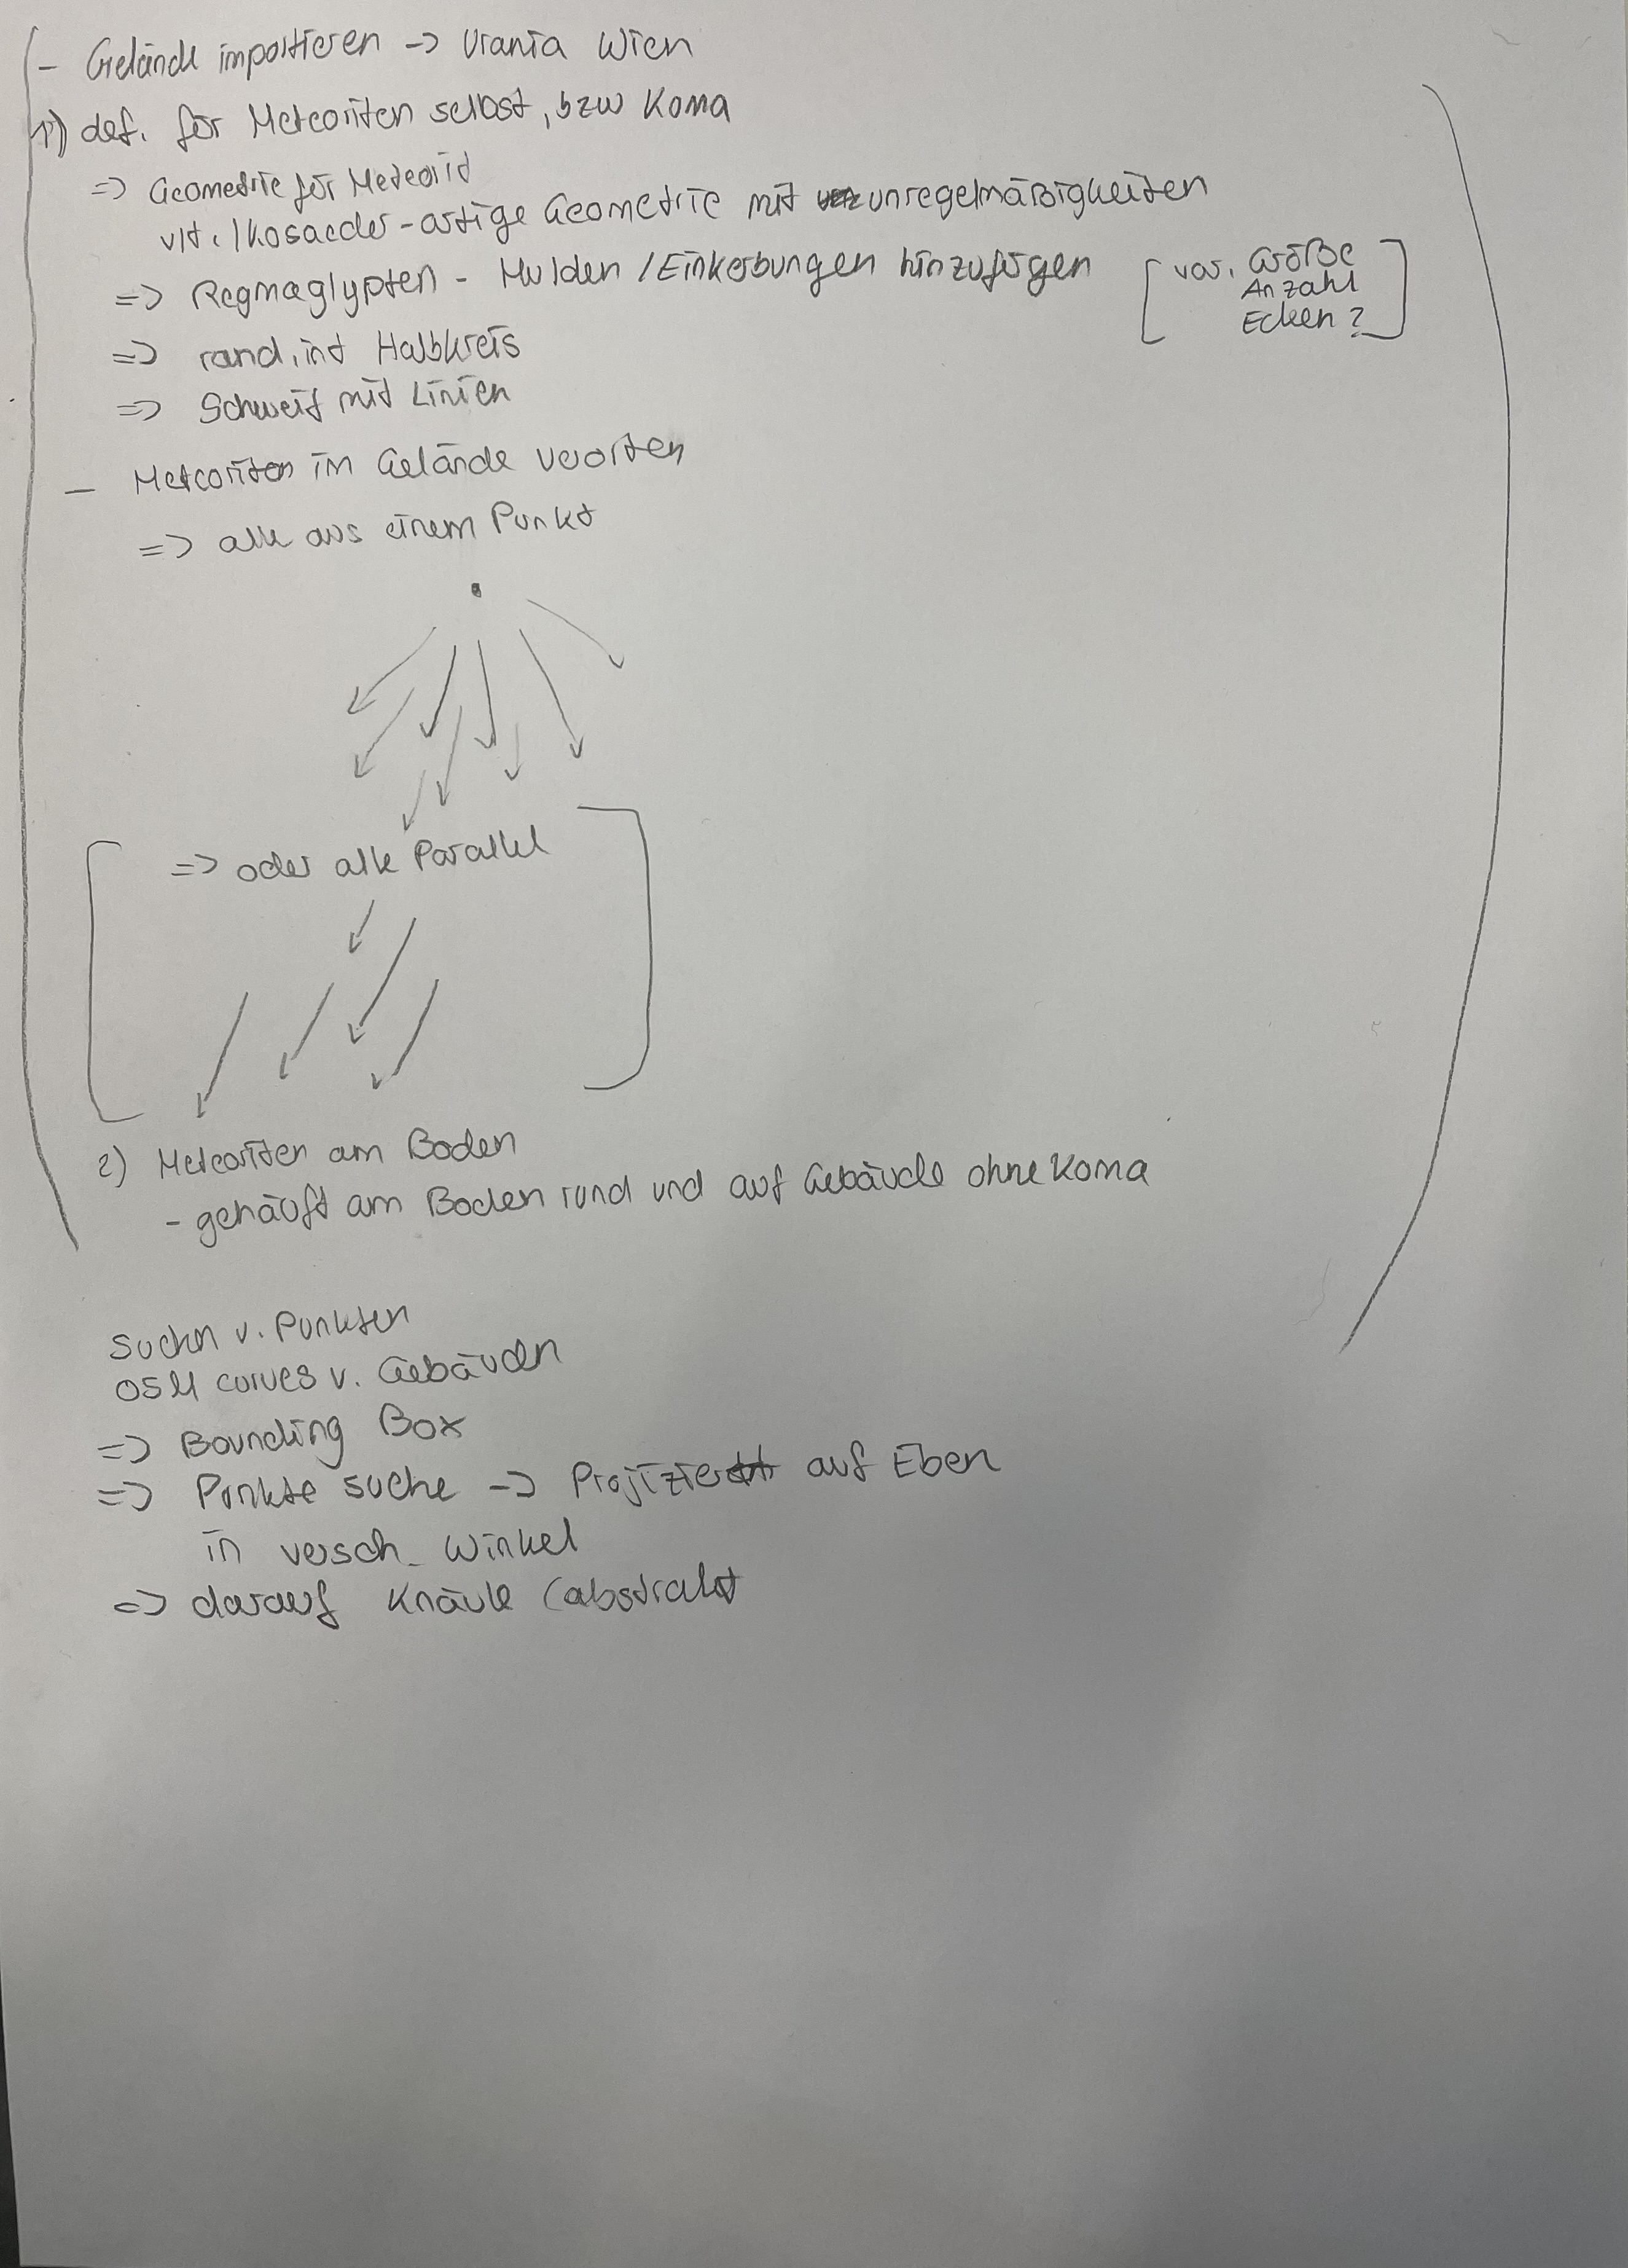 - Gelände importieren -> Urania Wien
1) def. für Meteoriten selbst, bzw Koma
=> Geometrie für Meteorit
vlt. Ikosaeder-artige Geometrie mit unregelmäßigkeiten
=> Regmaglypten - Mulden / Einkerbungen hinzufügen [var. Größe
Anzahl
Ecken?]
=> rand. int Halbkreis
=> Schweif mit Linien
- Meteoriten im Gelände verorten
=> alle aus einem Punkt
[=> oder alle Parallel]
2) Meteoriten am Boden
- gehäuft am Boden rund und auf Gebäude ohne Koma
Suchn v. Punkten
OSM curves v. Gebäuden
=> Bounding Box
=> Punkte suche -> Projizier auf Eben
in versch. Winkel
=> darauf Knäule (abstrakt